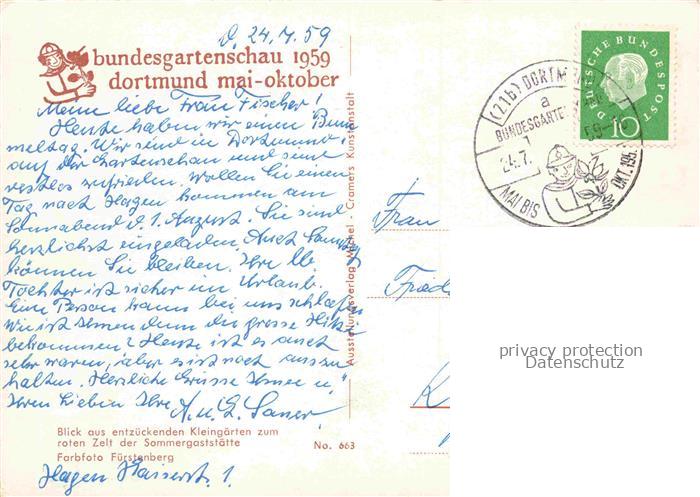 D. 24.7.59
bundesgartenschau 1959
dortmund mai-oktober
Meine liebe Frau Fischer!
Heute haben wir einen Bum
meltag. Wir sind in Dortmund
auf der Gartenschau und sind
restlos zufrieden. Wollen Sie einen
Tag nach Hagen kommen am
Sonnabend d. 1. August. Sie sind
herzlichst eingeladen. Auch Sonntag
können Sie bleiben. Ihre lb
Tochter ist sicher im Urlaub.
Eine Person kann bei uns schlafen
Wie ist Ihnen denn die grosse Hitze
bekommen? Heute ist es auch
sehr warm, aber es ist noch auszu
halten. Herzliche Grüsse Ihnen u.
Ihren Lieben Ihre A. u. E. Sauer.
Blick aus entzückenden Kleingärten zum
roten Zelt der Sommergaststätte
Farbfoto Fürstenberg
No. 663
Hagen Kaiserstr. 1.
Ausstellungsverlag Michel - Cramers Kunstanstalt
(21b) DORTM
a
BUNDESGARTEN
24.7.
MAI BIS OKT.195
DEUTSCHE BUNDESPOST
10
Frau
Fried
K
privacy protection
Datenschutz